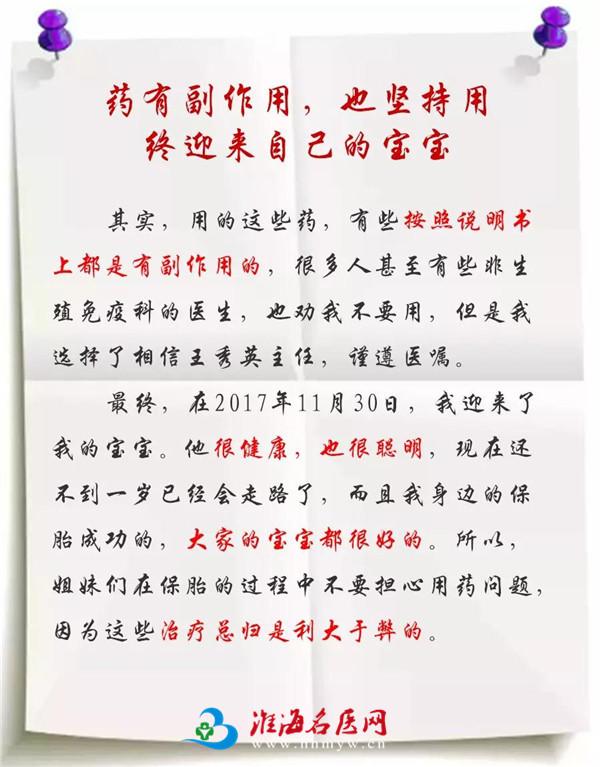 药有副作用，也坚持用
终迎来自己的宝宝
其实，用的这些药，有些按照说明书
上都是有副作用的，很多人甚至有些非生
殖免疫科的医生，也劝我不要用，但是我
选择了相信王秀英主任，谨遵医嘱。
最终，在2017年11月30日，我迎来了
我的宝宝。他很健康，也很聪明，现在还
不到一岁已经会走路了，而且我身边的保
胎成功的，大家的宝宝都很好的。所以，
姐妹们在保胎的过程中不要担心用药问题，
因为这些治疗总归是利大于弊的。
淮海名医网
www.hhmyw.cn